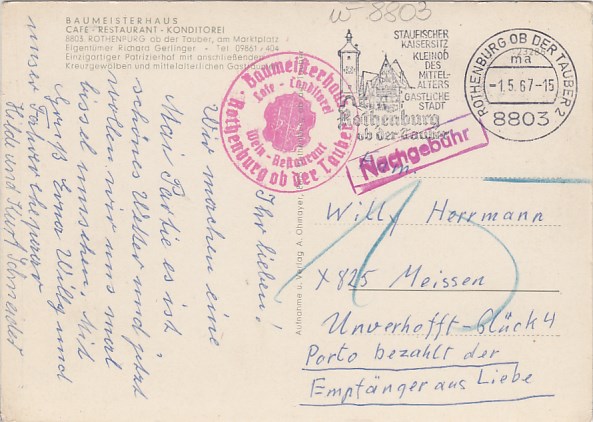 w-8803
BAUMEISTERHAUS
CAFE - RESTAURANT - KONDITOREI
8803 ROTHENBURG ob der Tauber, am Marktplatz
Eigentümer Richard Gerlinger - Tel. 09861/404
Einzigartiger Patrizierhof mit anschließenden
Kreuzgewölben und mittelalterlichen
Baumeisterhaus
Cafe - Conditorei
Wein-Restaurant
Rothenburg ob der Tauber
STAUFISCHER
KAISERSITZ
KLEINOD
DES
MITTEL-
ALTERS
GASTLICHE
STADT
Rothenburg
ob der Tauber
ROTHENBURG OB DER TAUBER 2
ma
-1.5.67-15
8803
Nachgebühr
Ihr lieben!
Wir machen eine
Mai Partie es ist
schönes Wetter und jetzt
wollen wir uns mal
bissl umsehen. Mit
Gruß Erna Willy und
unser Fahrer Ehepaar
Hilde und Kurt Schneider
Aufnahme u. Verlag A. Ohmayer,
15
Willy Herrmann
X825 Meissen
Unverhofft-Glück 4
Porto bezahlt der
Empfänger aus Liebe